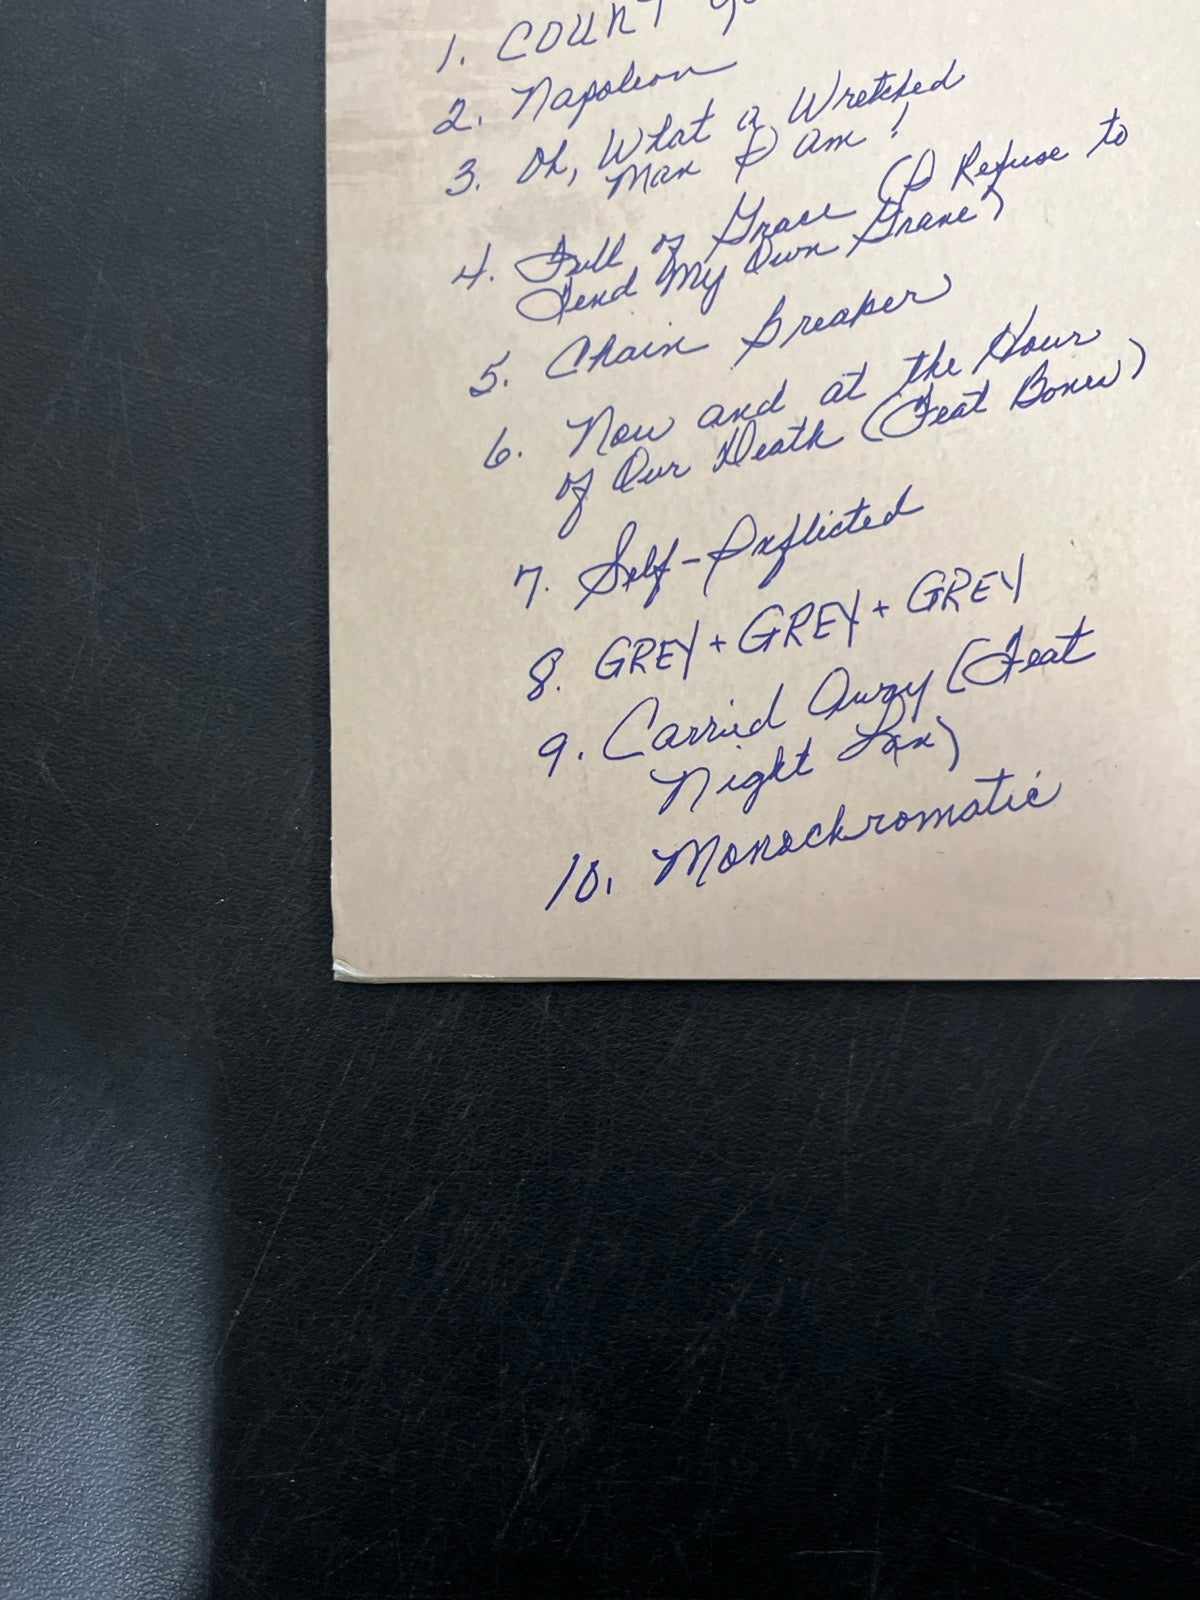 1. COUNT
2. Napoleon
3. Oh, What a Wretched
Man I am!
4. Full of Grace (I Refuse to
Tend My Own Grave)
5. Chain Breaker
6. Now and at the Hour
of Our Death (Feat Bones)
7. Self-Inflicted
8. GREY + GREY + GREY
9. Carried Away (Feat
Night Lox)
10. Monochromatic